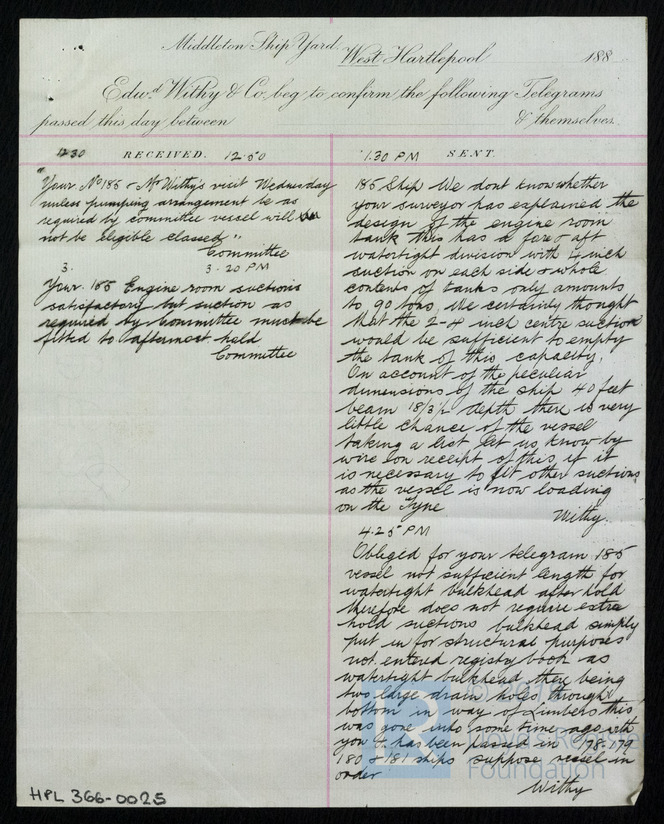 Middleton Ship Yard
West Hartlepool 188
Edwd Withy & Co. beg to confirm the following Telegrams
passed this day between & themselves.
12.30 RECEIVED. 12.50
"Your No 185 - Mr Withy's visit Wednesday
unless pumping arrangement be as
required by committee vessel will
not be eligible classed"
Committee
3. 3-20 PM
Your 185 Engine room suctions
satisfactory but suction as
required by Committee must be
fitted to aftermost hold
Committee
1.30 PM SENT.
185 Ship We dont know whether
your surveyor has explained the
design of the engine room
tank this has a fore & aft
watertight division with 4 inch
suction on each side & whole
contents of tanks only amounts
to 90 tons, We certainly thought
that the 2-4 inch centre suction
would be sufficient to empty
the tank of this capacity.
On account of the peculiar
dimensions of the ship 40 feet
beam 18/3½ depth there is very
little chance of the vessel
taking a list let us know by
wire on receipt of this if it
is necessary to fit other suctions
as the vessel is now loading
on the Tyne
Withy.
4.25 PM
Obliged for your telegram 185
vessel not sufficient length for
watertight bulkhead after hold
therefore does not require extra
hold suctions bulkhead simply
put in for structural purposes
not entered registry book as
watertight bulkhead there being
two large drain holes through
bottom in way of Limbers this
was gone into some time ago with
you & has been passed in 178-179
180 & 181 ships suppose vessel in
order
Withy
HPL 366-0025
Lloyd's Register
Foundation